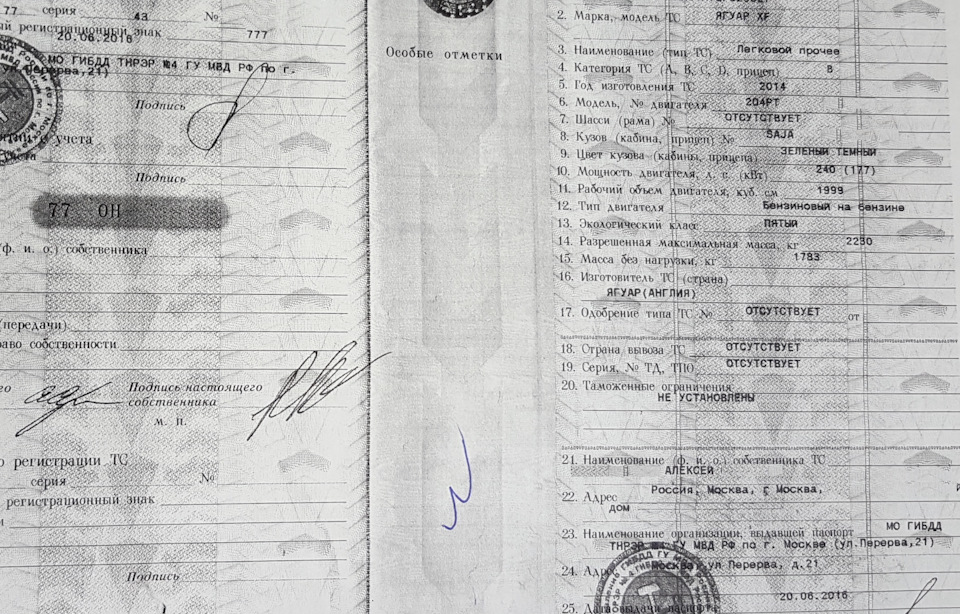 77 серия 43 №
регистрационный знак 777
20.06.2016
МО ГИБДД ТНРЭР №4 ГУ МВД РФ по г.
Перерва,21)
Подпись
учета
Подпись
77 ОН
(ф. и. о.) собственника
(передачи)
право собственности
Подпись настоящего
собственника
м. п.
регистрации ТС
серия №
регистрационный знак
Подпись
Особые отметки
2. Марка, модель ТС ЯГУАР XF
3. Наименование (тип ТС) Легковой прочее
4. Категория ТС (А, В, С, D, прицеп) В
5. Год изготовления ТС 2014
6. Модель, № двигателя 204PT
7. Шасси (рама) № ОТСУТСТВУЕТ
8. Кузов (кабина, прицеп) № SAJA
9. Цвет кузова (кабины, прицепа) ЗЕЛЕНЫЙ ТЕМНЫЙ
10. Мощность двигателя, л. с. (кВт) 240 (177)
11. Рабочий объем двигателя, куб. см 1999
12. Тип двигателя Бензиновый на бензине
13. Экологический класс ПЯТЫЙ
14. Разрешенная максимальная масса, кг 2230
15. Масса без нагрузки, кг 1783
16. Изготовитель ТС (страна)
ЯГУАР(АНГЛИЯ)
17. Одобрение типа ТС № ОТСУТСТВУЕТ от
18. Страна вывоза ТС ОТСУТСТВУЕТ
19. Серия, № ТД, ТПО ОТСУТСТВУЕТ
20. Таможенные ограничения
НЕ УСТАНОВЛЕНЫ
21. Наименование (ф. и. о.) собственника ТС
АЛЕКСЕЙ
22. Адрес Россия, Москва, г Москва,
дом
23. Наименование организации, выдавшей паспорт МО ГИБДД
ТНРЭР №4 ГУ МВД РФ по г. Москве (ул.Перерва,21)
24. Адрес Москва, ул Перерва, д.21
20.06.2016
25. Дата выдачи паспорта